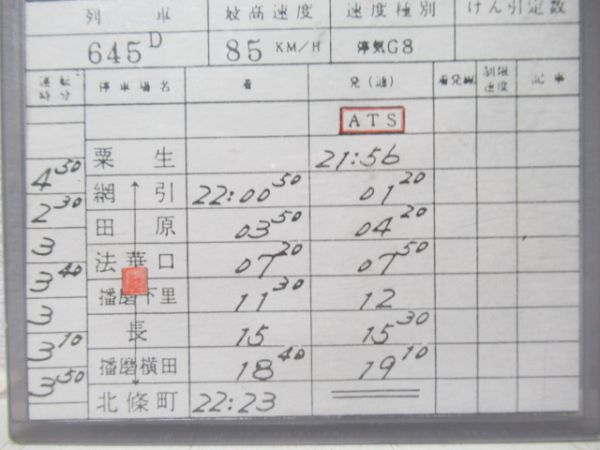 列車 最高速度 速度種別 けん引定数
645D 85 KM/H 停気G8
運転時分 停車場名 着 発(通) 着発線 制限速度 記事
ATS
粟生 21:56
4 50
網引 22:00 50 01 20
2 30
田原 03 50 04 20
3
法華口 07 20 07 50
3 40
播磨下里 11 30 12
3
長 15 15 30
3 10
播磨横田 18 40 19 10
3 50
北條町 22:23